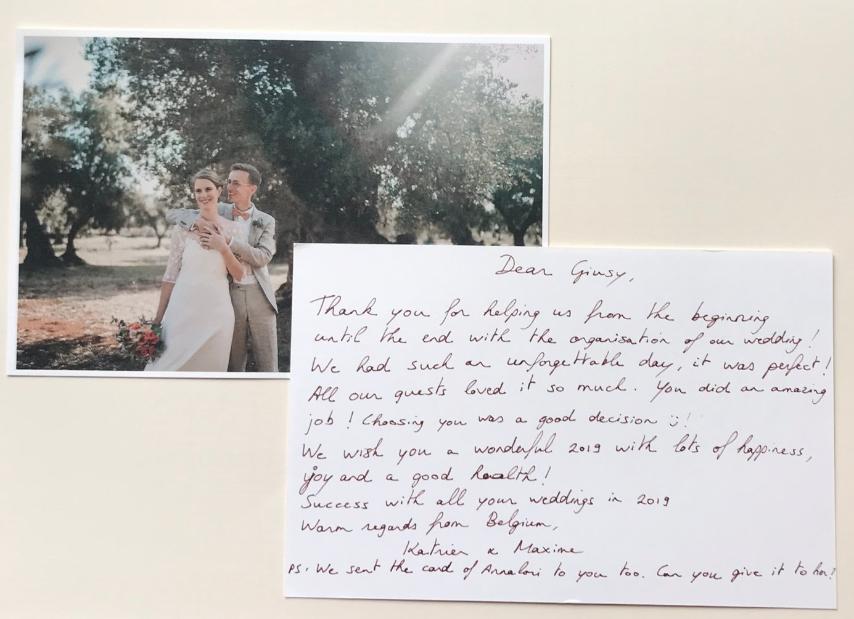 Dear Giusy,
Thank you for helping us from the beginning
until the end with the organisation of our wedding!
We had such an unforgettable day, it was perfect!
All our guests loved it so much. You did an amazing
job! Choosing you was a good decision ☺!
We wish you a wonderful 2019 with lots of happiness,
joy and a good health!
Success with all your weddings in 2019
Warm regards from Belgium,
Katrien & Maxime
PS. We sent the card of Annalori to you too. Can you give it to her?